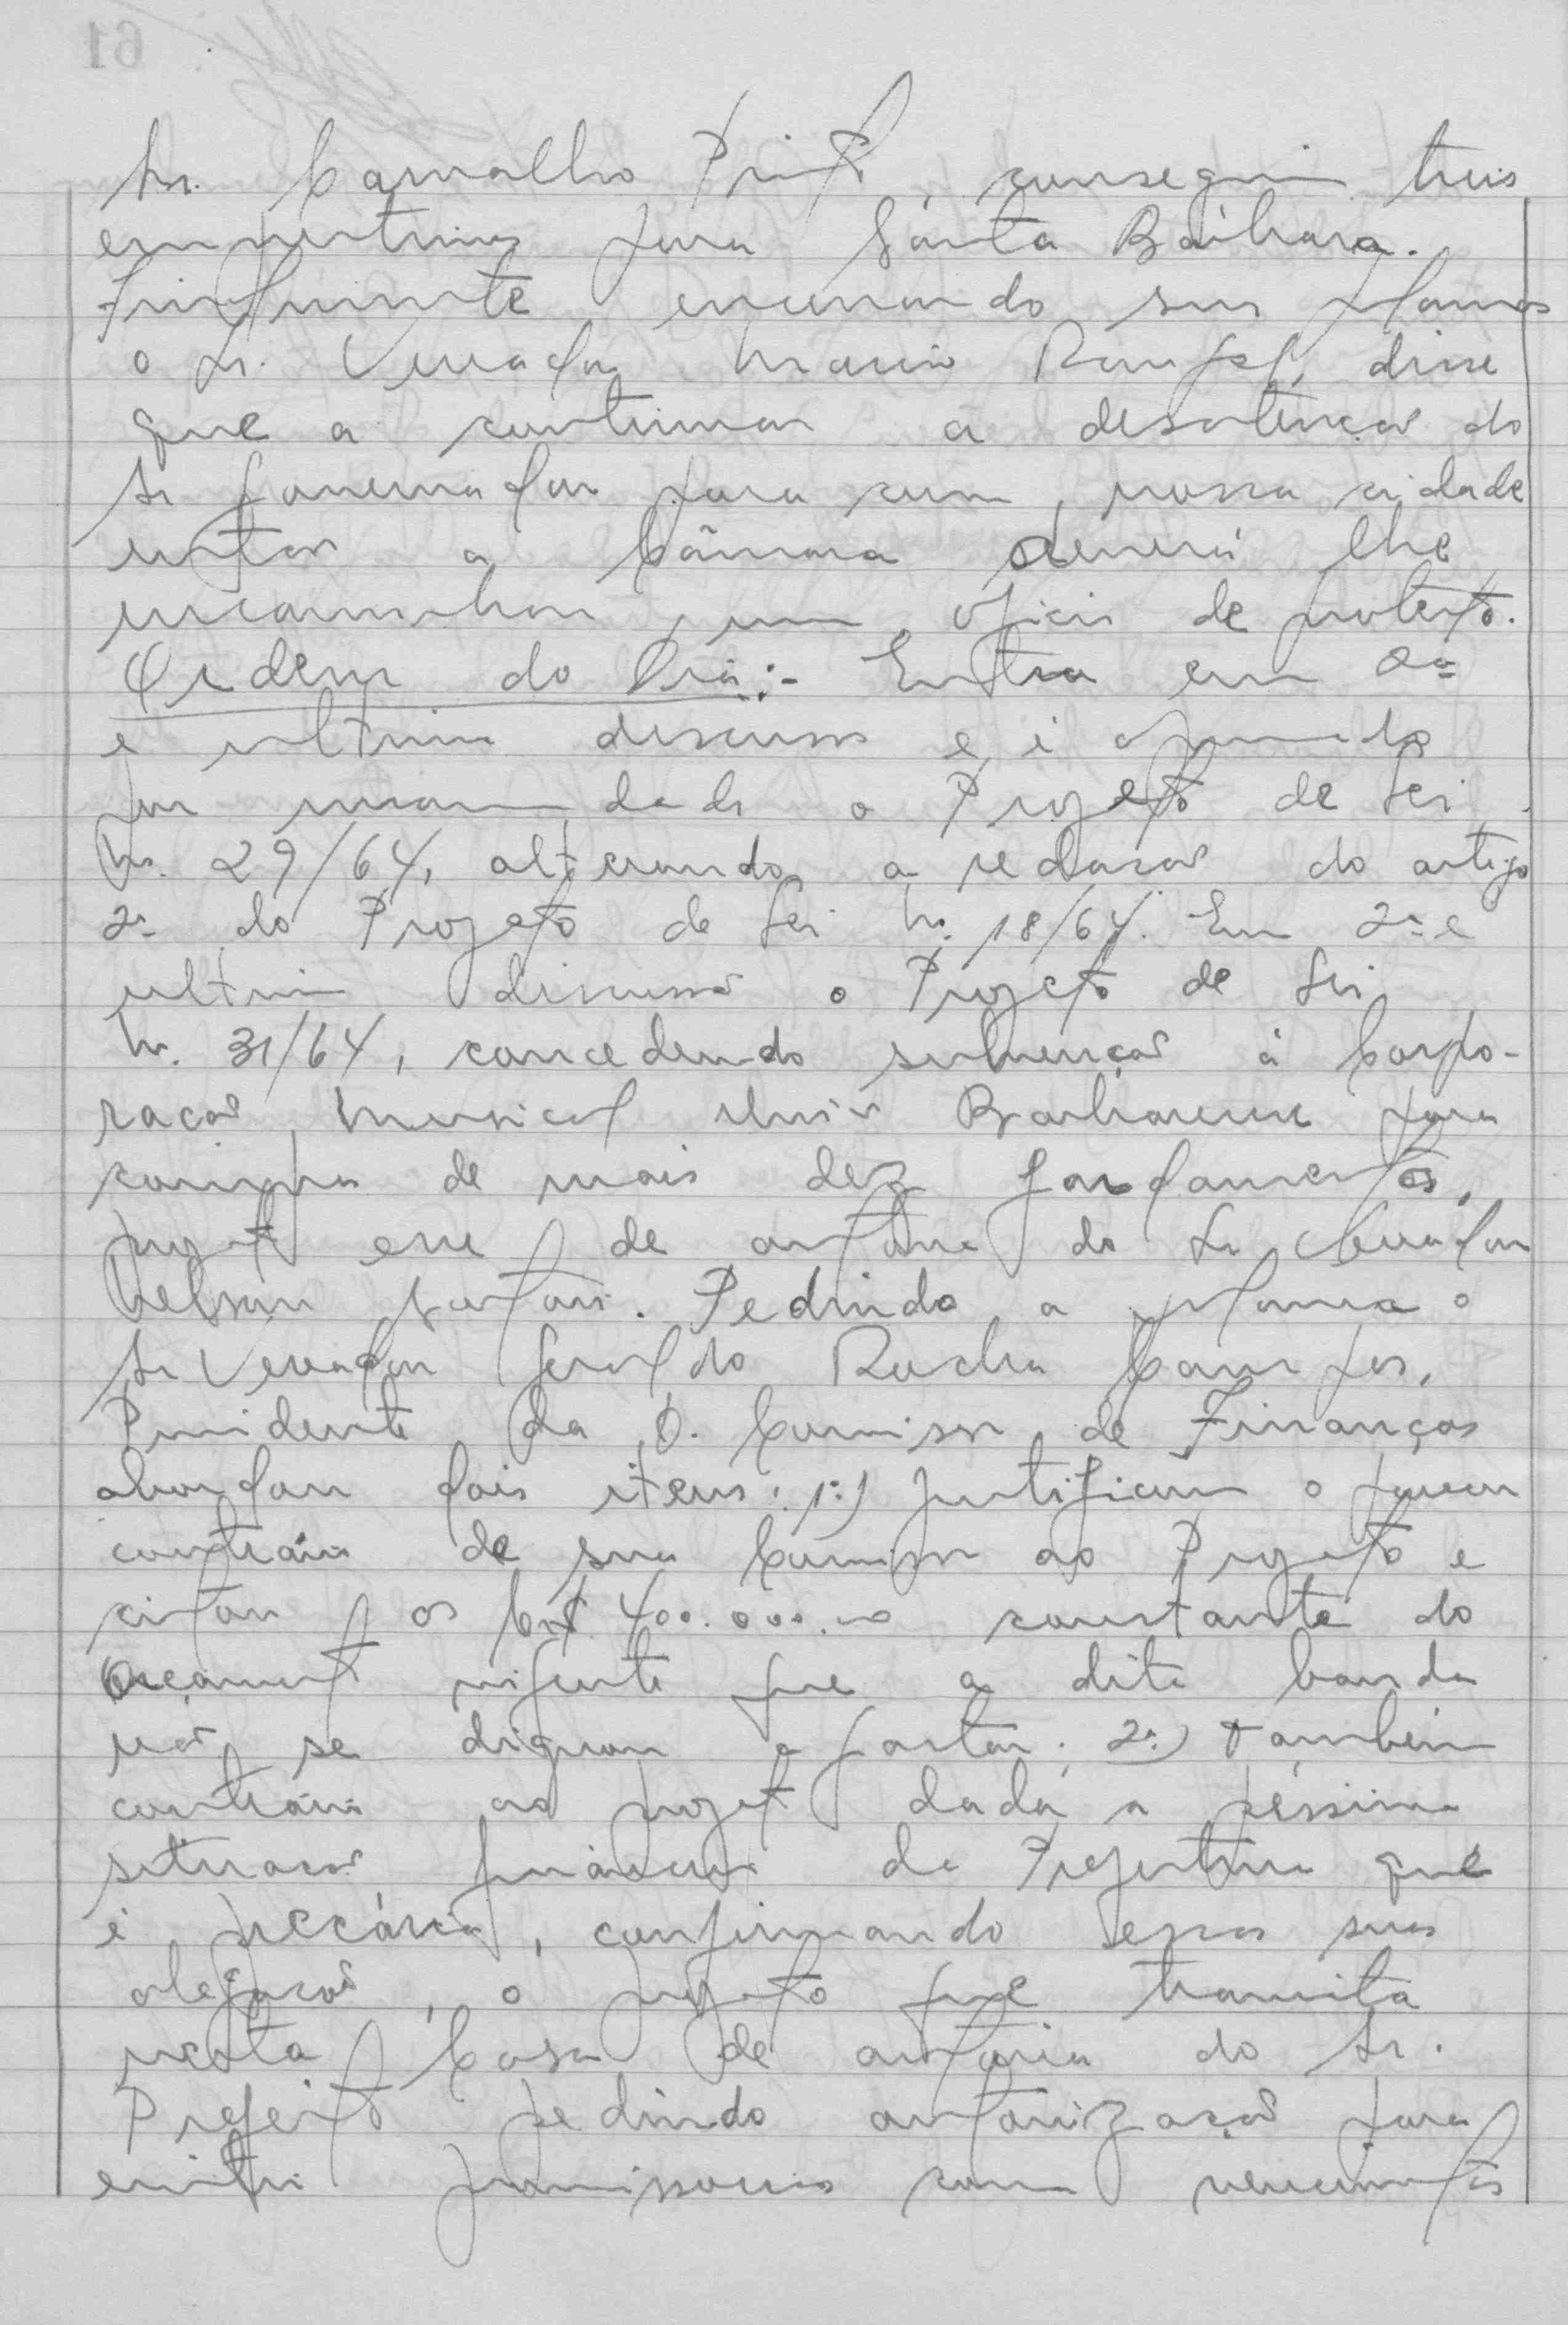 Sr. Carvalho Pinto, conseguiu treis
para Santa Bárbara.
Finalmente encerrando sua palavra
o Sr. Vereador Mario Rangel, disse
que a continuar a desatenção do
Sr Governador para com nossa cidade
então a Câmara deverá lhe
encaminhar um oficio de protesto.
Ordem do Dia:- Entra em 2a
e ultima discussão e é aprovado
por unanimidade o Projeto de Lei
Nr. 29/64, alterando a redacao do artigo
2º do Projeto de Lei Nr. 18/64. Em 2ª e
ultima discussão o Projeto de Lei
Nr. 31/64, concedendo subvenção á Corpo-
racao Musical União Barbarense para
compra de mais dez fardamentos,
projeto esse de autoria do Sr Vereador
Nelson. Pedindo a palavra o
Sr Vereador Geraldo Rocha Campos,
Presidente da D. Comissão de Finanças
abordou dois itens: 1º) justificou o parecer
contrário de sua Comissão ao Projeto e
citou os Cr$ 400.000,00 constante do
Orçamento vigente que a dita banda
não se dignou a gastar; 2º) também
contrário ao projeto dada a péssima
situacao financeira da Prefeitura que
é precária, confirmando essas suas
alegacoes, o projeto que tramita
nesta Casa de autoria do Sr.
Prefeito pedindo autorização para
emitir promissorias com vencimentos